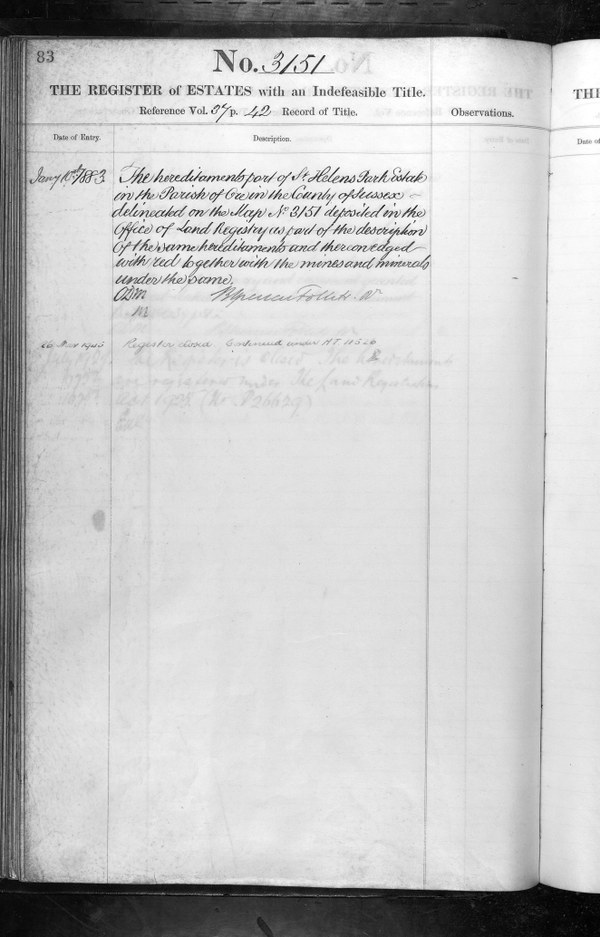 83
No. 3151
THE REGISTER of ESTATES with an Indefeasible Title.
Reference Vol. 37 p. 42 Record of Title.
Observations.
Date of Entry.
Description.
Jany 10th 1883
The hereditaments part of St Helens Park Estate
in the Parish of Ore in the County of Sussex
delineated on the Map No 3151 deposited in the
Office of Land Registry as part of the description
of the same hereditaments and thereon edged
with red together with the mines and minerals
under the same.
Follett
26 Mar
Register closed. Continued under HT 11526
The Register is closed The
are registered under the Land Registration
Act 1925
TH
Date of